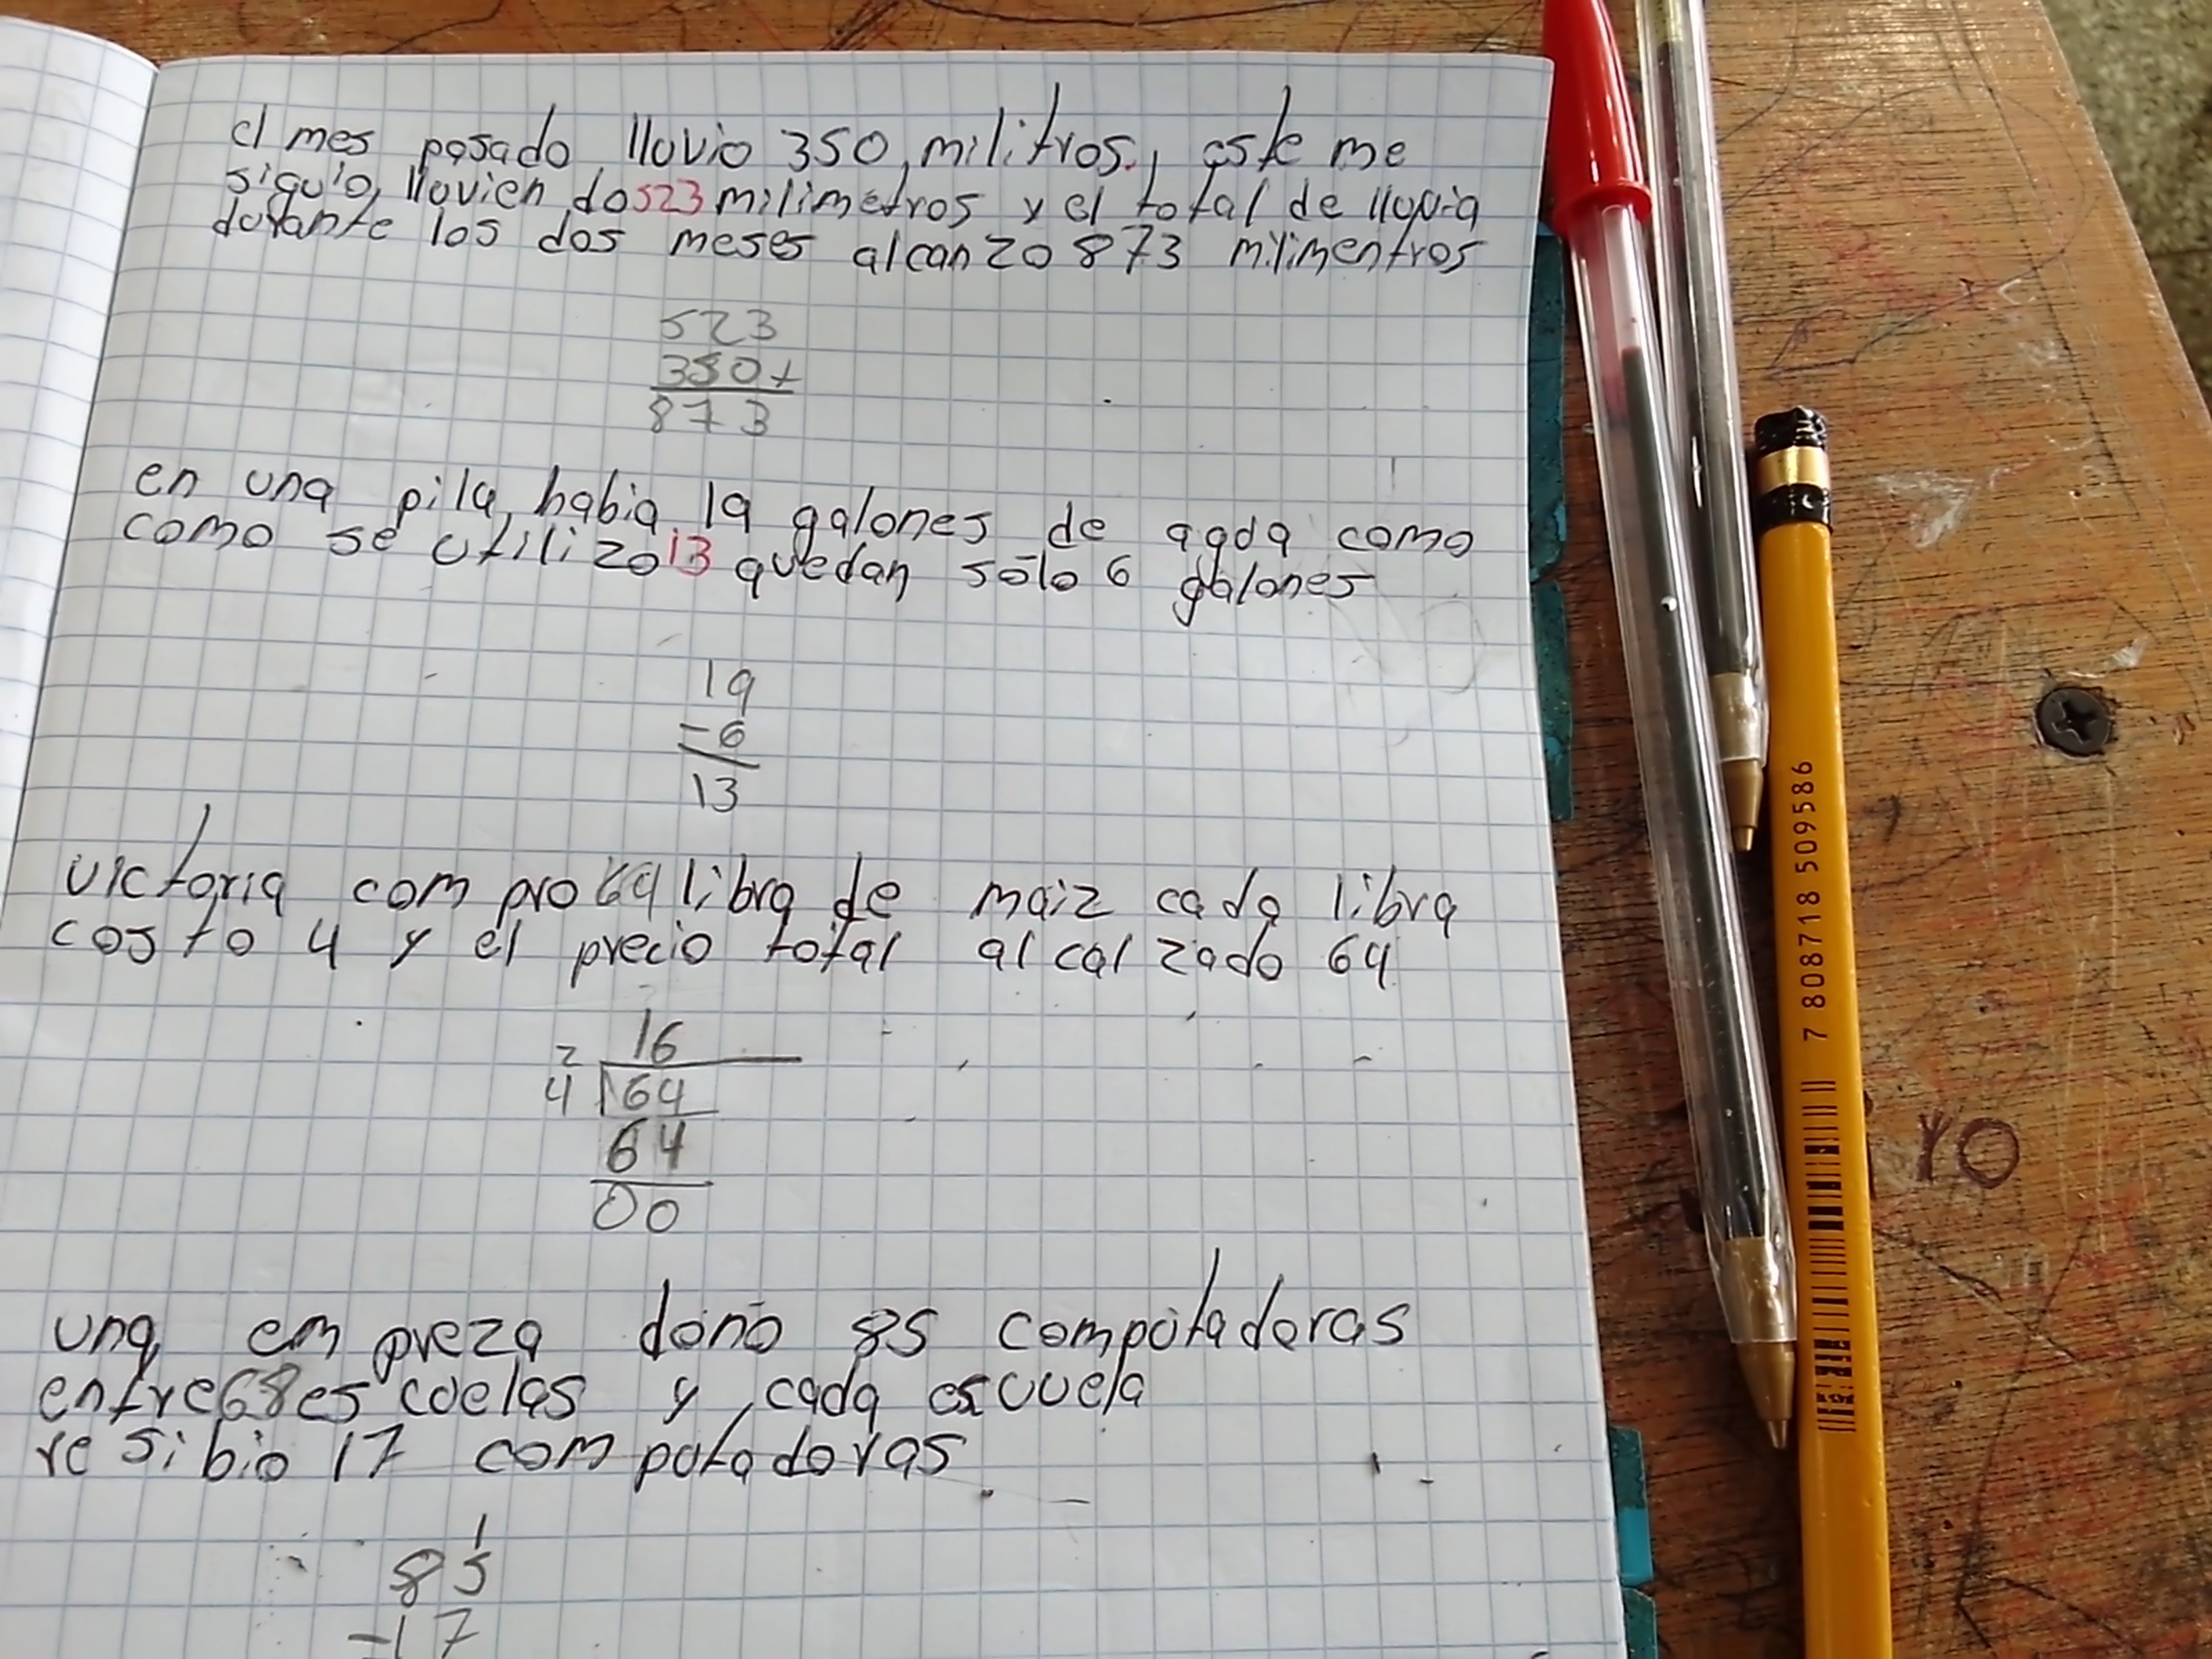 el mes pasado llovio 350 militros, este me
siguio llovien do 523 milimetros y el total de lluvia
durante los dos meses alcanzo 873 milimentros
523
350+
873
en una pila habia 19 galones de agua como
como se utilizo 13 quedan solo 6 galones
19
-6
13
victoria compro 64 libra de maiz cada libra
costo 4 y el precio total alcalzado 64
16
2
4 64
64
00
una empreza dono 85 computadoras
entre 68 escuelas y cada escuuela
resibio 17 computadoras
1
85
-17
7 808718 509586
YO